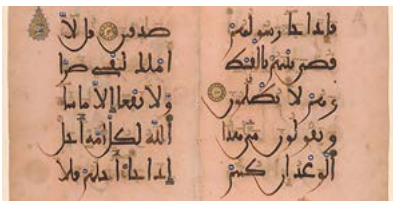 فإذا جاء رسولهم
قضى بينهم بالقسط
وهم لا يظلمون
ويقولون متى هذا
الوعد إن كنتم
صدقين قل لا
أملك لنفسي ضرا
ولا نفعا إلا ما شاء
الله لكل أمة أجل
إذا جاء أجلهم فلا